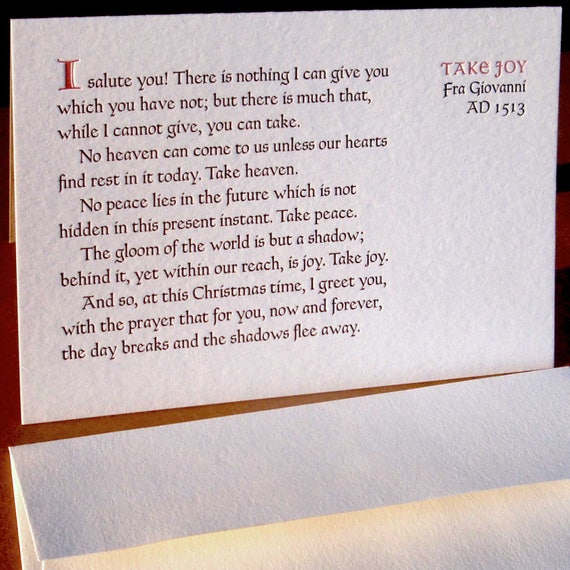 I salute you! There is nothing I can give you
which you have not; but there is much that,
while I cannot give, you can take.
No heaven can come to us unless our hearts
find rest in it today. Take heaven.
No peace lies in the future which is not
hidden in this present instant. Take peace.
The gloom of the world is but a shadow;
behind it, yet within our reach, is joy. Take joy.
And so, at this Christmas time, I greet you,
with the prayer that for you, now and forever,
the day breaks and the shadows flee away.
TAKE JOY
Fra Giovanni
AD 1513